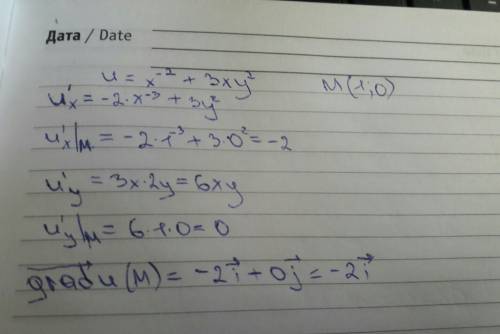 Дата / Date
u = x⁻² + 3xy² M(1;0)
u'x = -2·x⁻³ + 3y²
u'x|м = -2·1⁻³ + 3·0² = -2
u'y = 3x·2y = 6xy
u'y|м = 6·1·0 = 0
град u(M) = -2i⃗ + 0j⃗ = -2i⃗